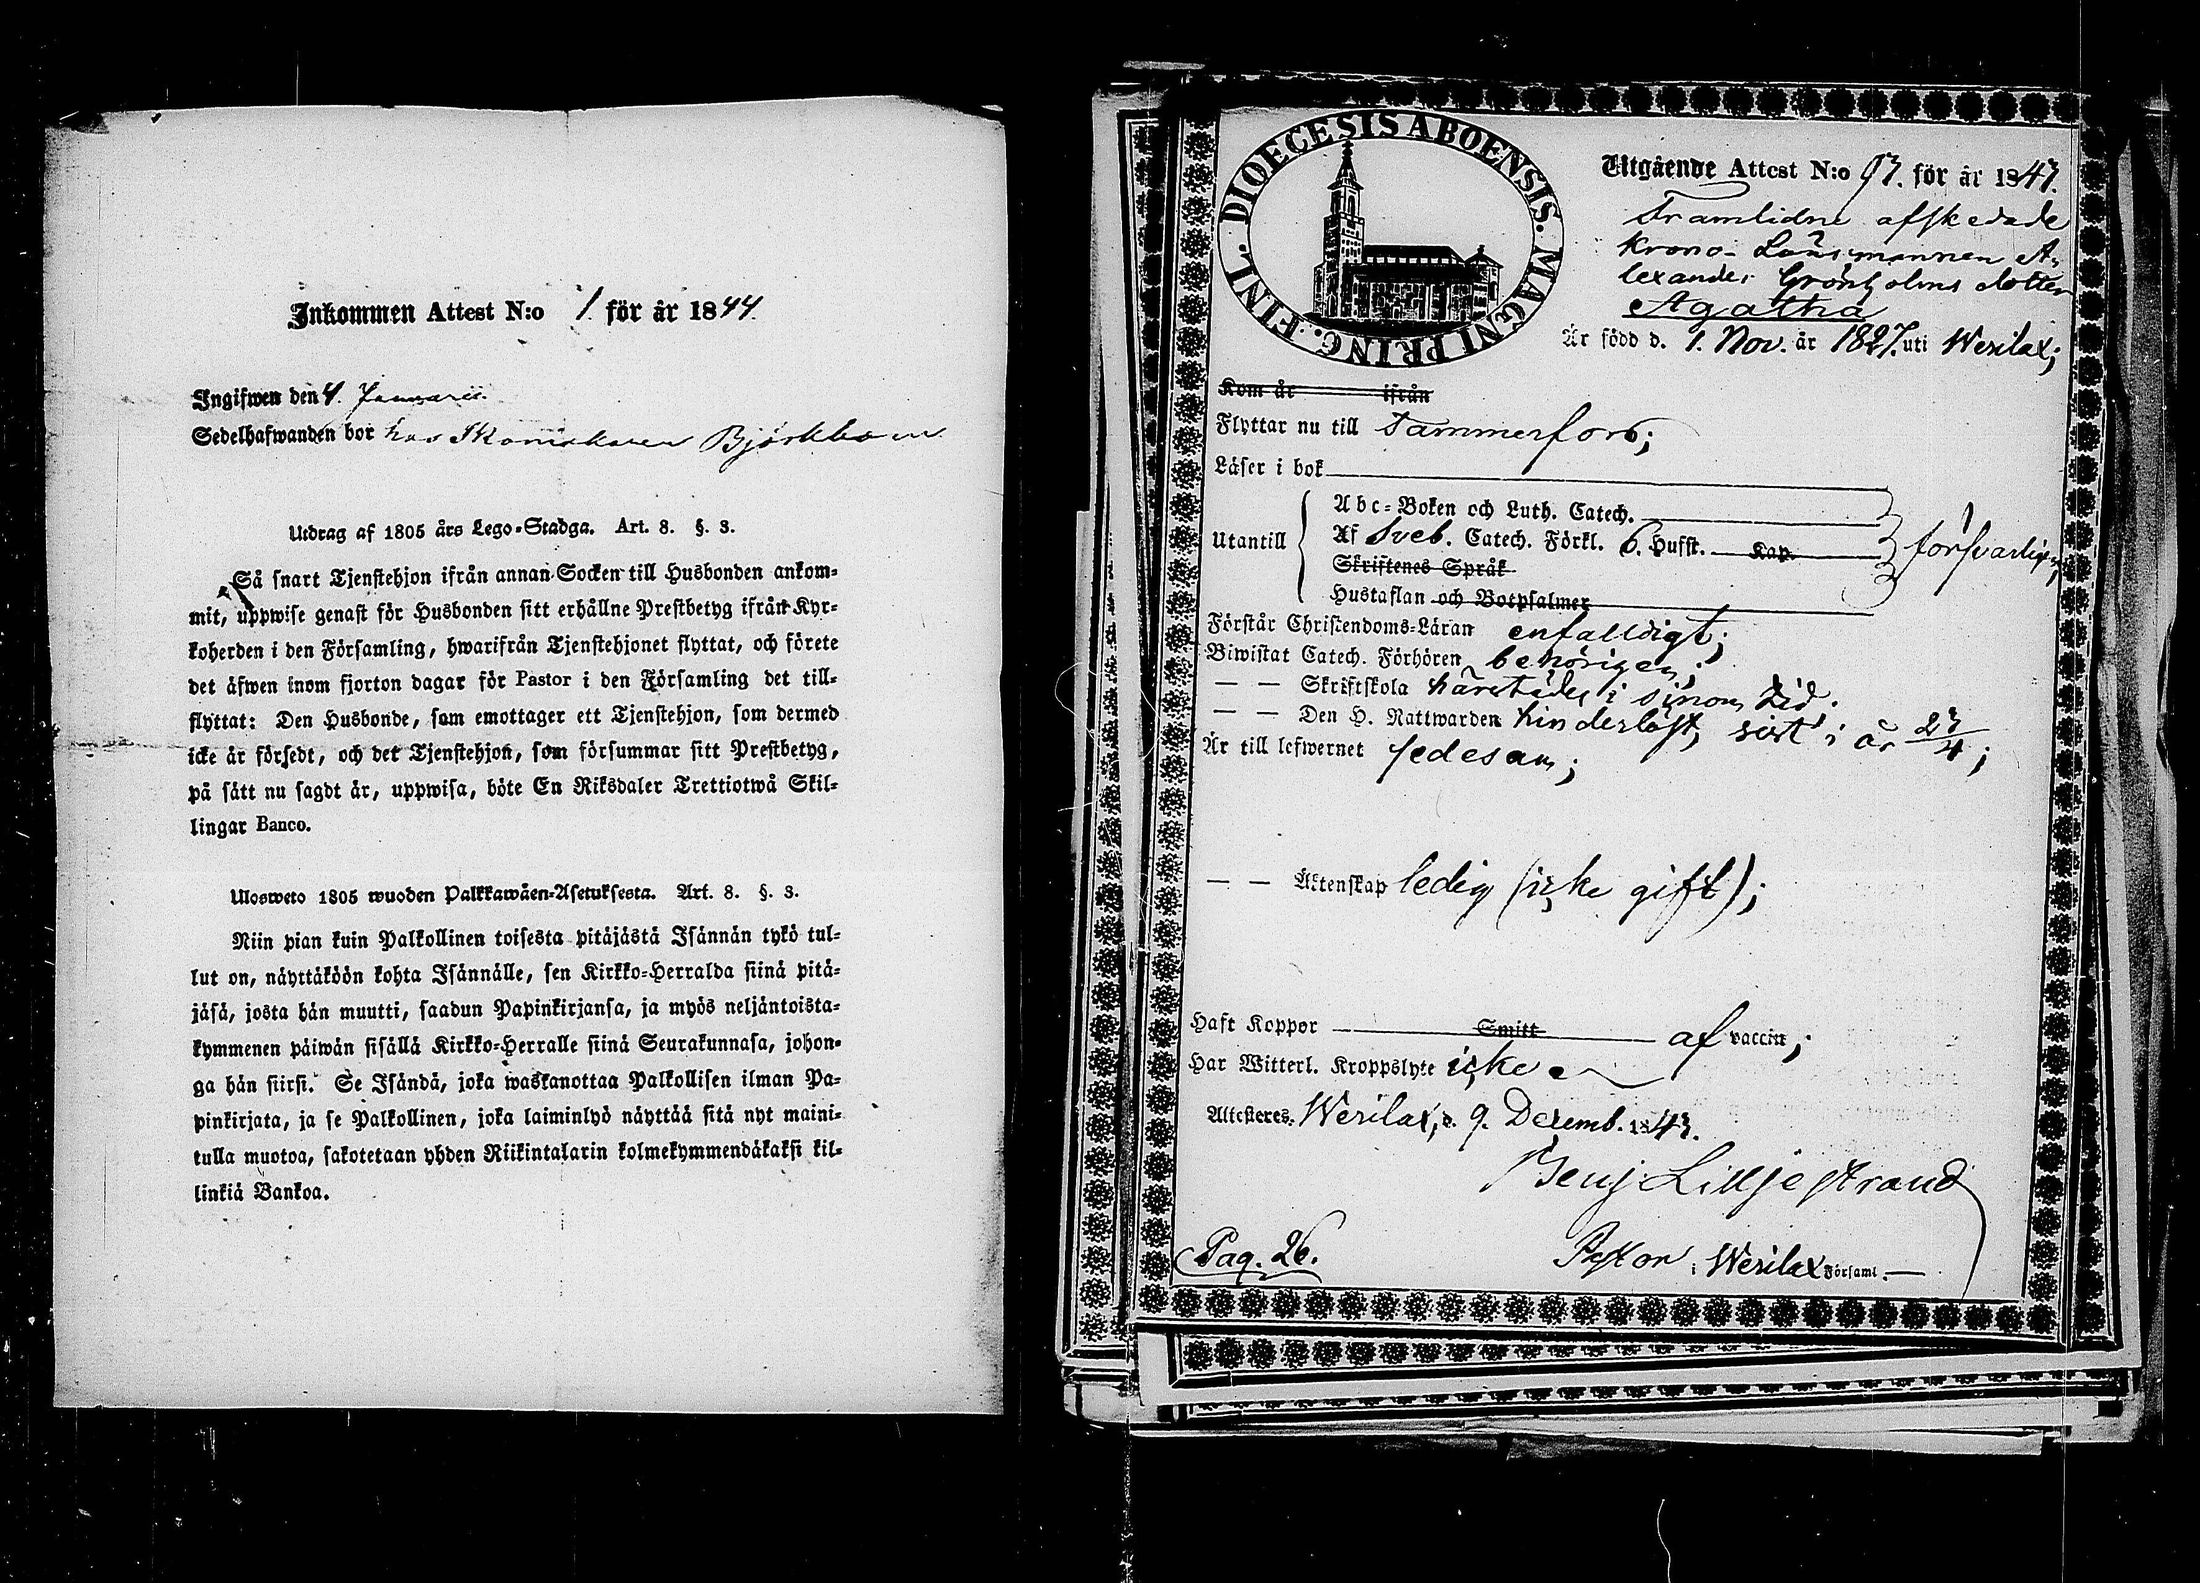 Inkommen Attest N:o 1 för år 1844.
Ingifwen den 4. Januarii
Sedelhafwanden bor hos Björkbom
Utdrag af 1805 års Lego-Stadga. Art. 8. §. 3.
Så snart Tjenstehjon ifrån annan Socken till Husbonden ankom-
mit, uppwise genast för Husbonden sitt erhållne Prestbetyg ifrån Kyr-
koherden i den Församling, hwarifrån Tjenstehjonet flyttat, och förete
det äfwen inom fjorton dagar för Pastor i den Församling det till-
flyttat: Den Husbonde, som emottager ett Tjenstehjon, som dermed
icke är försedt, och det Tjenstehjon, som försummar sitt Prestbetyg,
på sätt nu sagdt är, uppwisa, böte En Riksdaler Trettiotwå Skil-
lingar Banco.
Ulosweto 1805 wuoden Palkkawäen-Asetuksesta. Art. 8. §. 3.
Niin pian kuin Palkollinen toisesta pitäjästä Isännän tykö tul-
lut on, näyttäköön kohta Isännälle, sen Kirkko-Herralda siinä pitä-
jäsä, josta hän muutti, saadun Papinkirjansa, ja myös neljäntoista-
kymmenen päiwän sisällä Kirkko-Herralle siinä Seurakunnasa, johon-
ga hän siirsi. Se Isändä, joka waskanottaa Palkollisen ilman Pa-
pinkirjata, ja se Palkollinen, joka laiminlyö näyttää sitä nyt maini-
tulla muotoa, sakotetaan yhden Riikintalarin kolmekymmendäkaksi kil-
linkiä Bankoa.
DIOECESIS ABOENSIS. MAGNI PRINC. FINL.
Utgående Attest N:o 93. för år 1843.
Framlidne afskedade
Krono-Länsmannen A-
lexander Grönholms dotter
Agatha
Är född d. 1. Nov. år 1827. uti Wesilax;
Kom år ifrån
Flyttar nu till Tammerfors;
Läser i bok
Utantill
Abc-Boken och Luth. Catech.
Af Sveb. Catech. Förkl. 6. Hufst. Kap.
Skriftenes Språk
Hustaflan och Botpsalmer
försvarligen;
Förstår Christendoms-Läran enfalldigt;
Biwistat Catech. Förhören behörigen;
— — Skriftskola härstädes i sinom tid.
— — Den H. Nattwarden hinderlöst, sist i år 23/4;
Är till lefwernet sedesam;
— — Äktenskap ledig (icke gift);
Haft Koppor Smitt af vaccin;
Har Witterl. Kroppslyte icke
Attesteres. Wesilax, d. 9. Decemb. 1843.
Benj. Lilljestrand
Pag. 26.
Pastor i Wesilax Församl.